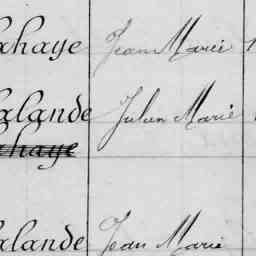 ahaye Jean Marie 1
alande Julien Marie
ahaye
alande Jean Marie